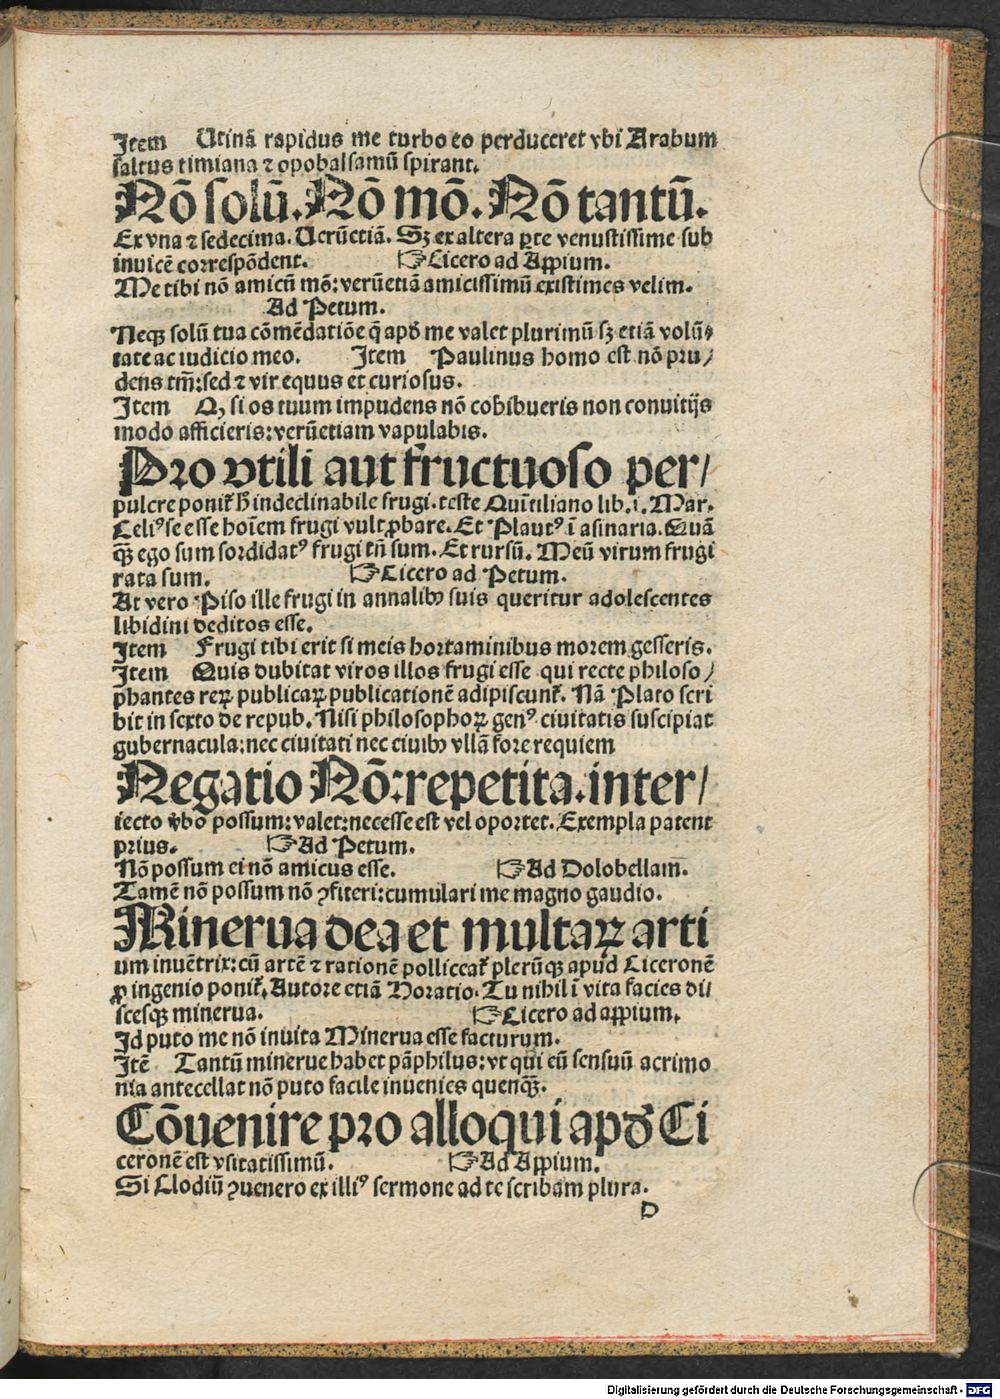 Item Utinã rapidus me turbo eo perduceret vbi Arabum
saltus timiana ⁊ opobalsamũ spirant.
Nõ solũ. Nõ mõ. Nõ tantũ.
Ex vna ⁊ sedecima. Uerũetiã. Sʒ ex altera ꝑte venustissime sub
inuicẽ correspõdent. ☞Cicero ad Appium.
Me tibi nõ amicũ mõ: verũetiã amicissimũ existimes velim.
Ad Petum.
Neqꝫ solũ tua cõmẽdatiõe q̃ apđ me valet plurimũ sʒ etiã volũ/
tate ac iudicio meo. Item Paulinus homo est nõ pru/
dens tm̃: sed ⁊ vir equus et curiosus.
Item Q, si os tuum impudens nõ cohibueris non conuitijs
modo afficieris: verũetiam vapulabis.
Pro vtili aut fructuoso per/
pulcre ponit᷑ ħ indeclinabile frugi. teste Quĩtiliano lib. i. Mar.
Celiꝰ se esse hoĩem frugi vult ꝓbare. Et Plautꝰ ĩ asinaria. Quã
q̃ꝫ ego sum sordidatꝰ frugi tñ sum. Et rursũ. Meũ virum frugi
rata sum. ☞Cicero ad Petum.
At vero Piso ille frugi in annalibꝫ suis queritur adolescentes
libidini deditos esse.
Item Frugi tibi erit si meis hortaminibus morem gesseris.
Item Quis dubitat viros illos frugi esse qui recte philoso/
phantes reꝝ publicaꝝ publicationẽ adipiscunt᷑. Nã Plato scri
bit in sexto de repub. Nisi philosophoꝝ genꝰ ciuitatis suscipiat
gubernacula: nec ciuitati nec ciuibꝫ vllã fore requiem
Negatio Nõ: repetita. inter/
iecto v̾bo possum: valet: necesse est vel oportet. Exempla patent
prius. ☞Ad Petum.
Nõ possum ei nõ amicus esse. ☞Ad Dolobellam.
Tamẽ nõ possum nõ ꝯfiteri: cumulari me magno gaudio.
Minerua dea et multaꝝ arti
um inuẽtrix: cũ artẽ ⁊ rationẽ polliceat᷑ plerũqꝫ apud Ciceronẽ
ꝓ ingenio ponit᷑. Autore etiã Horatio. Tu nihil ĩ vita facies di/
scesqꝫ minerua. ☞Cicero ad appium.
Id puto me nõ inuita Minerua esse facturum.
Itẽ Tantũ minerue habet pãphilus: vt qui eũ sensuũ acrimo
nia antecellat nõ puto facile inuenies quenq̃ꝫ.
Cõuenire pro alloqui apđ Ci
ceronẽ est vsitatissimũ. ☞Ad Appium.
Si Clodiũ ꝯuenero ex illiꝰ sermone ad te scribam plura.
D
Digitalisierung gefördert durch die Deutsche Forschungsgemeinschaft - DFG